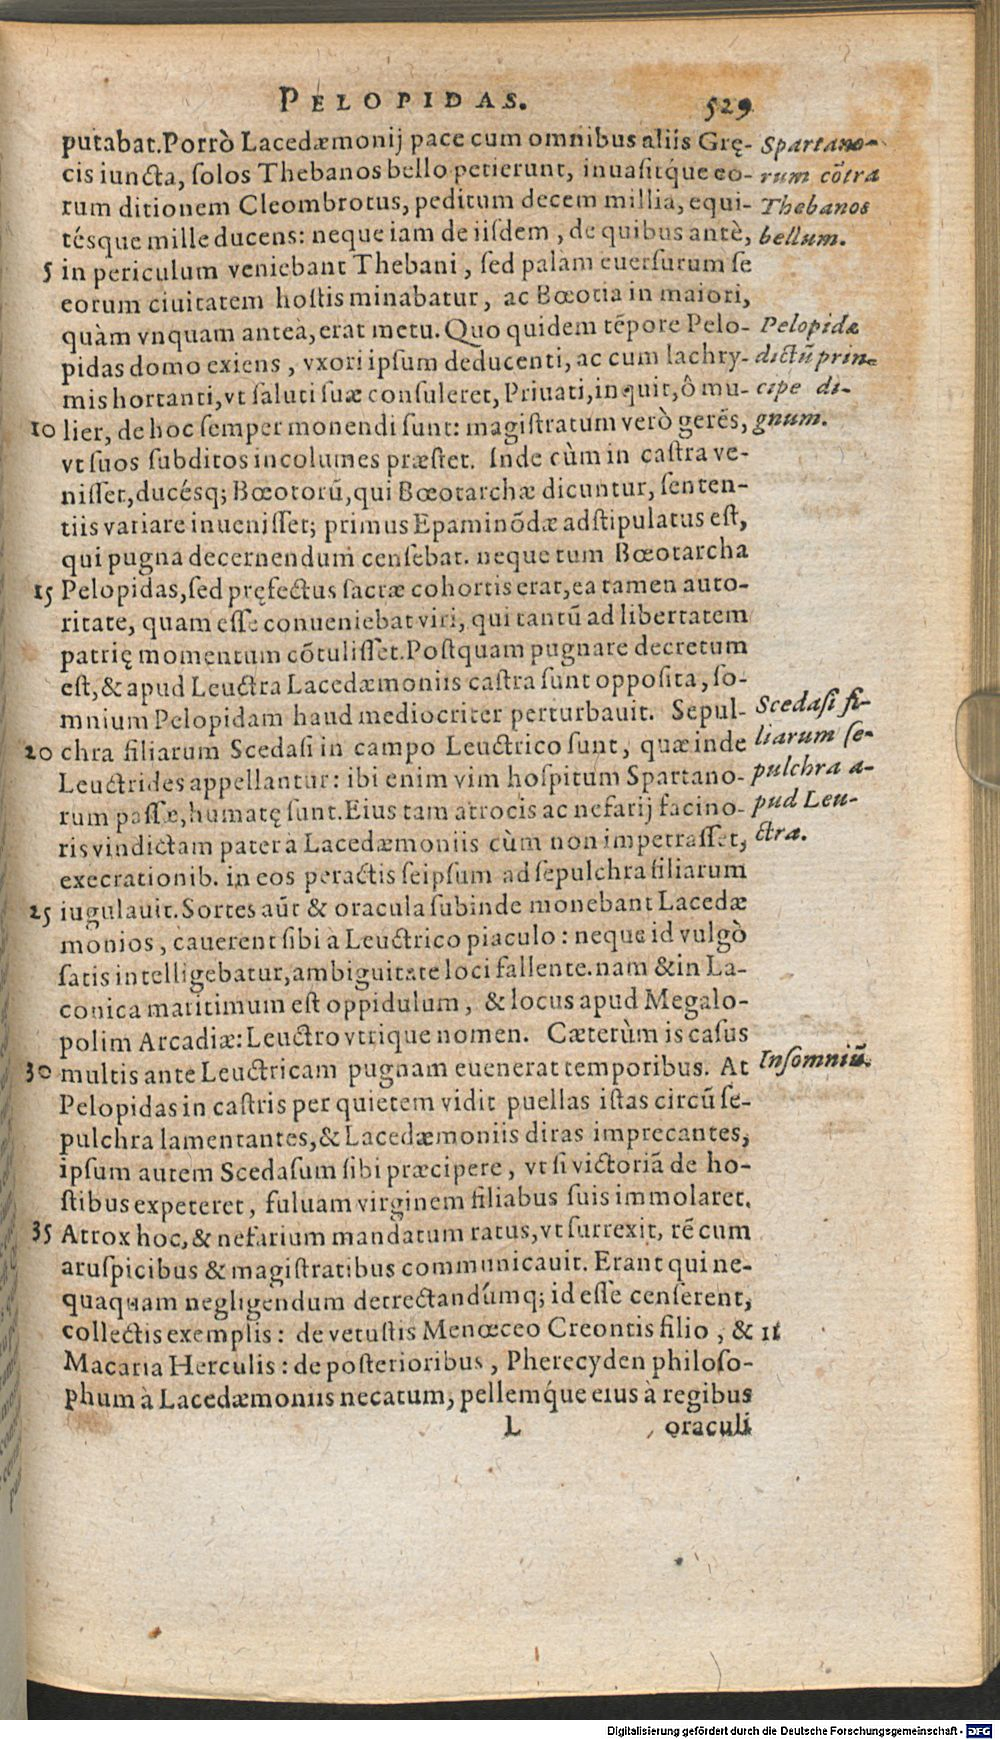 PELOPIDAS. 529
putabat. Porrò Lacedæmonij pace cum omnibus aliis Grę-
cis iuncta, solos Thebanos bello petierunt, inuasitq́ue eo-
rum ditionem Cleombrotus, peditum decem millia, equi-
tésque mille ducens: neque iam de iisdem, de quibus antè,
5 in periculum veniebant Thebani, sed palàm euersurum se
eorum ciuitatem hostis minabatur, ac Bœotia in maiori,
quàm vnquam anteà, erat metu. Quo quidem tẽpore Pelo-
pidas domo exiens, vxori ipsum deducenti, ac cum lachry-
mis hortanti, vt saluti suæ consuleret, Priuati, inquit, ô mu-
10 lier, de hoc semper monendi sunt: magistratum verò gerẽs,
vt suos subditos incolumes præstet. Inde cùm in castra ve-
nisset, ducésq; Bœotorũ, qui Bœotarchæ dicuntur, senten-
tiis variare inuenisset; primus Epaminõdæ adstipulatus est,
qui pugna decernendum censebat. neque tum Bœotarcha
15 Pelopidas, sed pręfectus sacræ cohortis erat, ea tamen auto-
ritate, quam esse conueniebat viri, qui tantũ ad libertatem
patrię momentum cõtulisset. Postquam pugnare decretum
est, & apud Leuctra Lacedæmoniis castra sunt opposita, so-
mnium Pelopidam haud mediocriter perturbauit. Sepul-
20 chra filiarum Scedasi in campo Leuctrico sunt, quæ inde
Leuctrides appellantur: ibi enim vim hospitum Spartano-
rum passæ, humatę sunt. Eius tam atrocis ac nefarij facino-
ris vindictam pater à Lacedæmoniis cùm non impetrasset,
execrationib. in eos peractis seipsum ad sepulchra filiarum
25 iugulauit. Sortes aũt & oracula subinde monebant Lacedæ
monios, cauerent sibi a Leuctrico piaculo: neque id vulgò
satis intelligebatur, ambiguitate loci fallente. nam & in La-
conica maritimum est oppidulum, & locus apud Megalo-
polim Arcadiæ: Leuctro vtrique nomen. Cæterùm is casus
30 multis ante Leuctricam pugnam euenerat temporibus. At
Pelopidas in castris per quietem vidit puellas istas circũ se-
pulchra lamentantes, & Lacedæmoniis diras imprecantes,
ipsum autem Scedasum sibi præcipere, vt si victoriã de ho-
stibus expeteret, fuluam virginem filiabus suis immolaret.
35 Atrox hoc, & nefarium mandatum ratus, vt surrexit, rẽ cum
aruspicibus & magistratibus communicauit. Erant qui ne-
quaquam negligendum detrectandúmq; id esse censerent,
collectis exemplis: de vetustis Menœceo Creontis filio, &
Macaria Herculis: de posterioribus, Pherecyden philoso-
phum à Lacedæmoniis necatum, pellemq́ue eius à regibus
L oraculi
Spartano-
rum cõtra
Thebanos
bellum.
Pelopidæ
dictũ prin-
cipe di-
gnum.
Scedasi fi-
liarum se-
pulchra a-
pud Leu-
ctra.
Insomniũ.
Digitalisierung gefördert durch die Deutsche Forschungsgemeinschaft - DFG